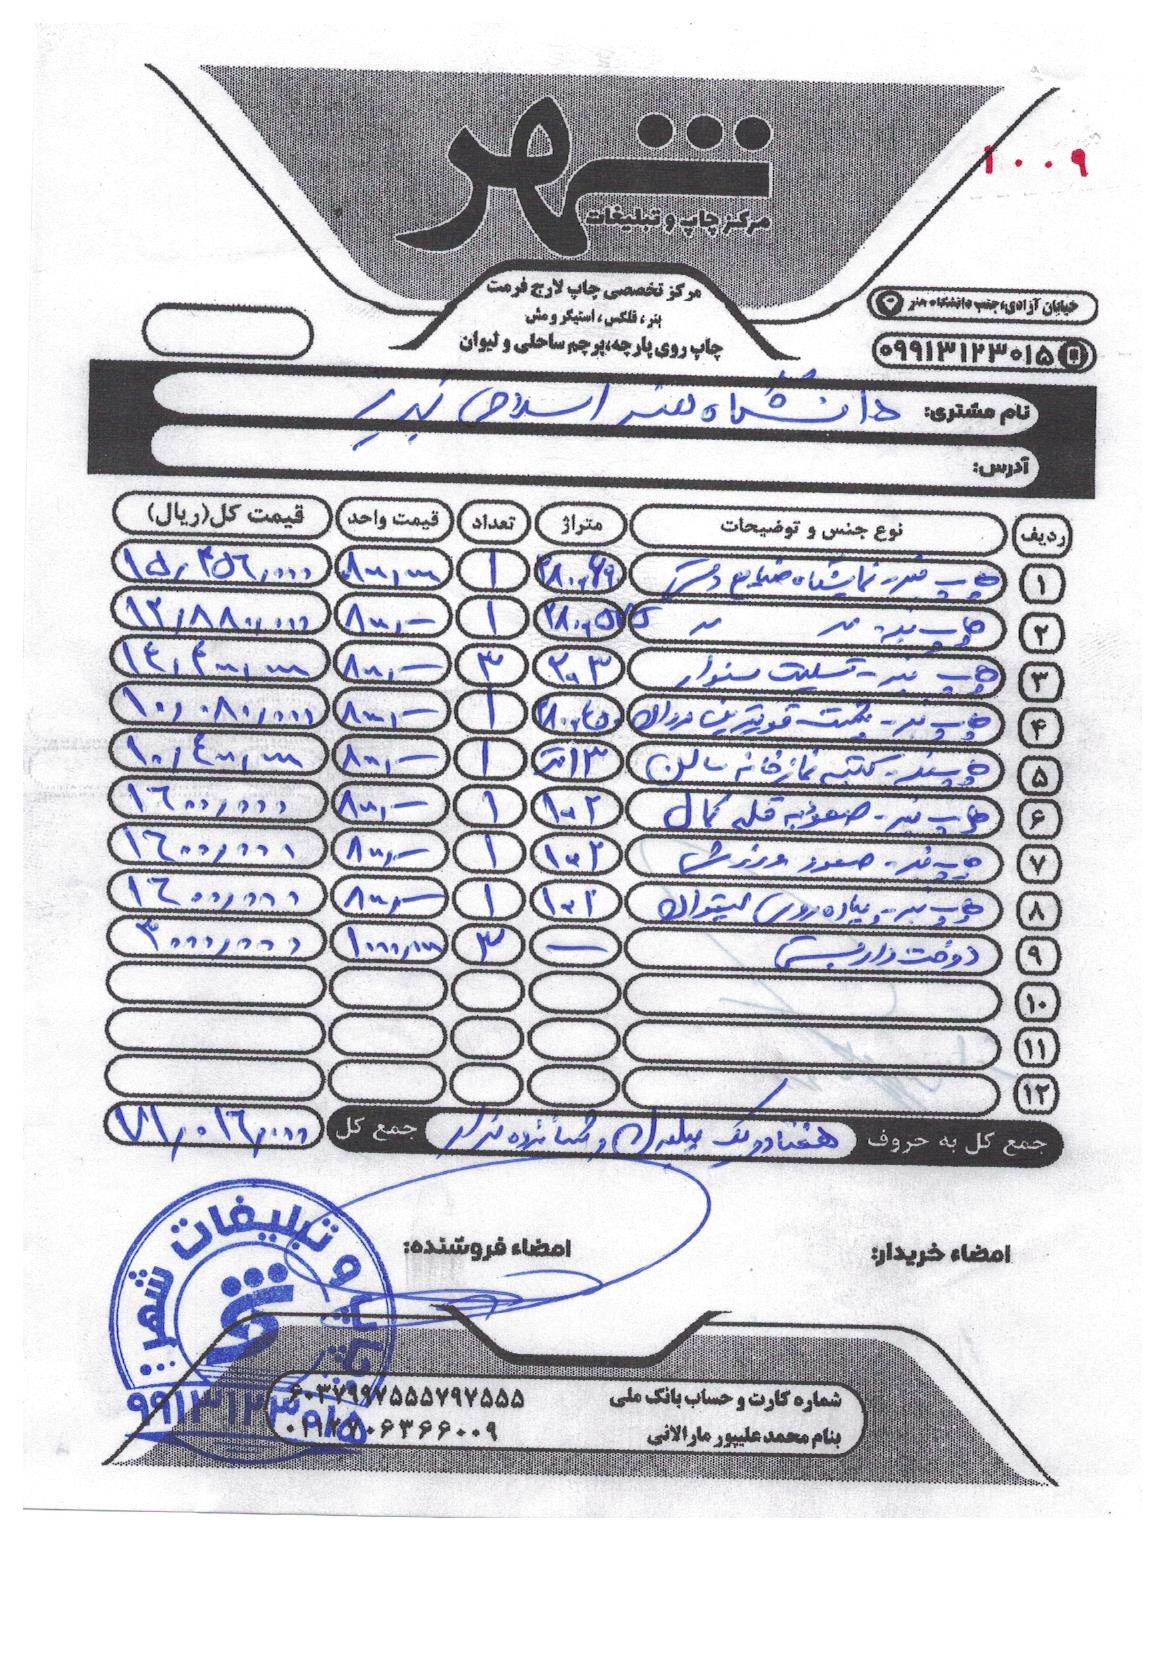 ۱۰۰۹
شهر
مرکز چاپ و تبلیغات
مرکز تخصصی چاپ لارج فرمت
بنر، فلکس، استیکر و مش
چاپ روی پارچه، پرچم ساحلی و لیوان
خیابان آزادی، جنب دانشگاه هنر
۰۹۹۱۳۱۲۳۰۱۵
نام مشتری: دانشگاه هنر اسلامی تبریز
آدرس:
ردیف نوع جنس و توضیحات متراژ تعداد قیمت واحد قیمت کل(ریال)
۱ چاپ بنر - نمایشگاه صنایع دستی ۱ ۸۰۰,۰۰۰ ۱۵,۴۵۶,۰۰۰
۲ چاپ بنر ۱ ۸۰۰,۰۰۰ ۱۲,۸۸۰,۰۰۰
۳ چاپ بنر - تسلیت ۳ ۸۰۰,۰۰۰ ۱۴,۴۰۰,۰۰۰
۴ چاپ بنر - ۱ ۸۰۰,۰۰۰ ۱۰,۰۸۰,۰۰۰
۵ چاپ بنر - کتیبه نمازخانه سالن ۱۳ متر ۱ ۸۰۰,۰۰۰ ۱۰,۴۰۰,۰۰۰
۶ چاپ بنر - صعود به قله کمال ۱×۲ ۱ ۸۰۰,۰۰۰ ۱۶۰۰,۰۰۰
۷ چاپ بنر - صعود ورزشی ۱×۲ ۱ ۸۰۰,۰۰۰ ۱۶۰۰,۰۰۰
۸ چاپ بنر - پیاده روی ۱×۲ ۱ ۸۰۰,۰۰۰ ۱۶۰۰,۰۰۰
۹ دوخت داربستی — ۳ ۱۰۰۰,۰۰۰ ۳۰۰۰,۰۰۰
۱۰
۱۱
۱۲
جمع کل به حروف هفتاد و یک میلیون و شانزده هزار جمع کل ۷۱,۰۱۶,۰۰۰
امضاء خریدار: امضاء فروشنده:
چاپ و تبلیغات شهر
۹۹۱۳۱۲۳۰۱۵
شماره کارت و حساب بانک ملی ۶۰۳۷۹۹۷۵۵۵۷۹۷۵۵۵
بنام محمد علیپور مارالانی